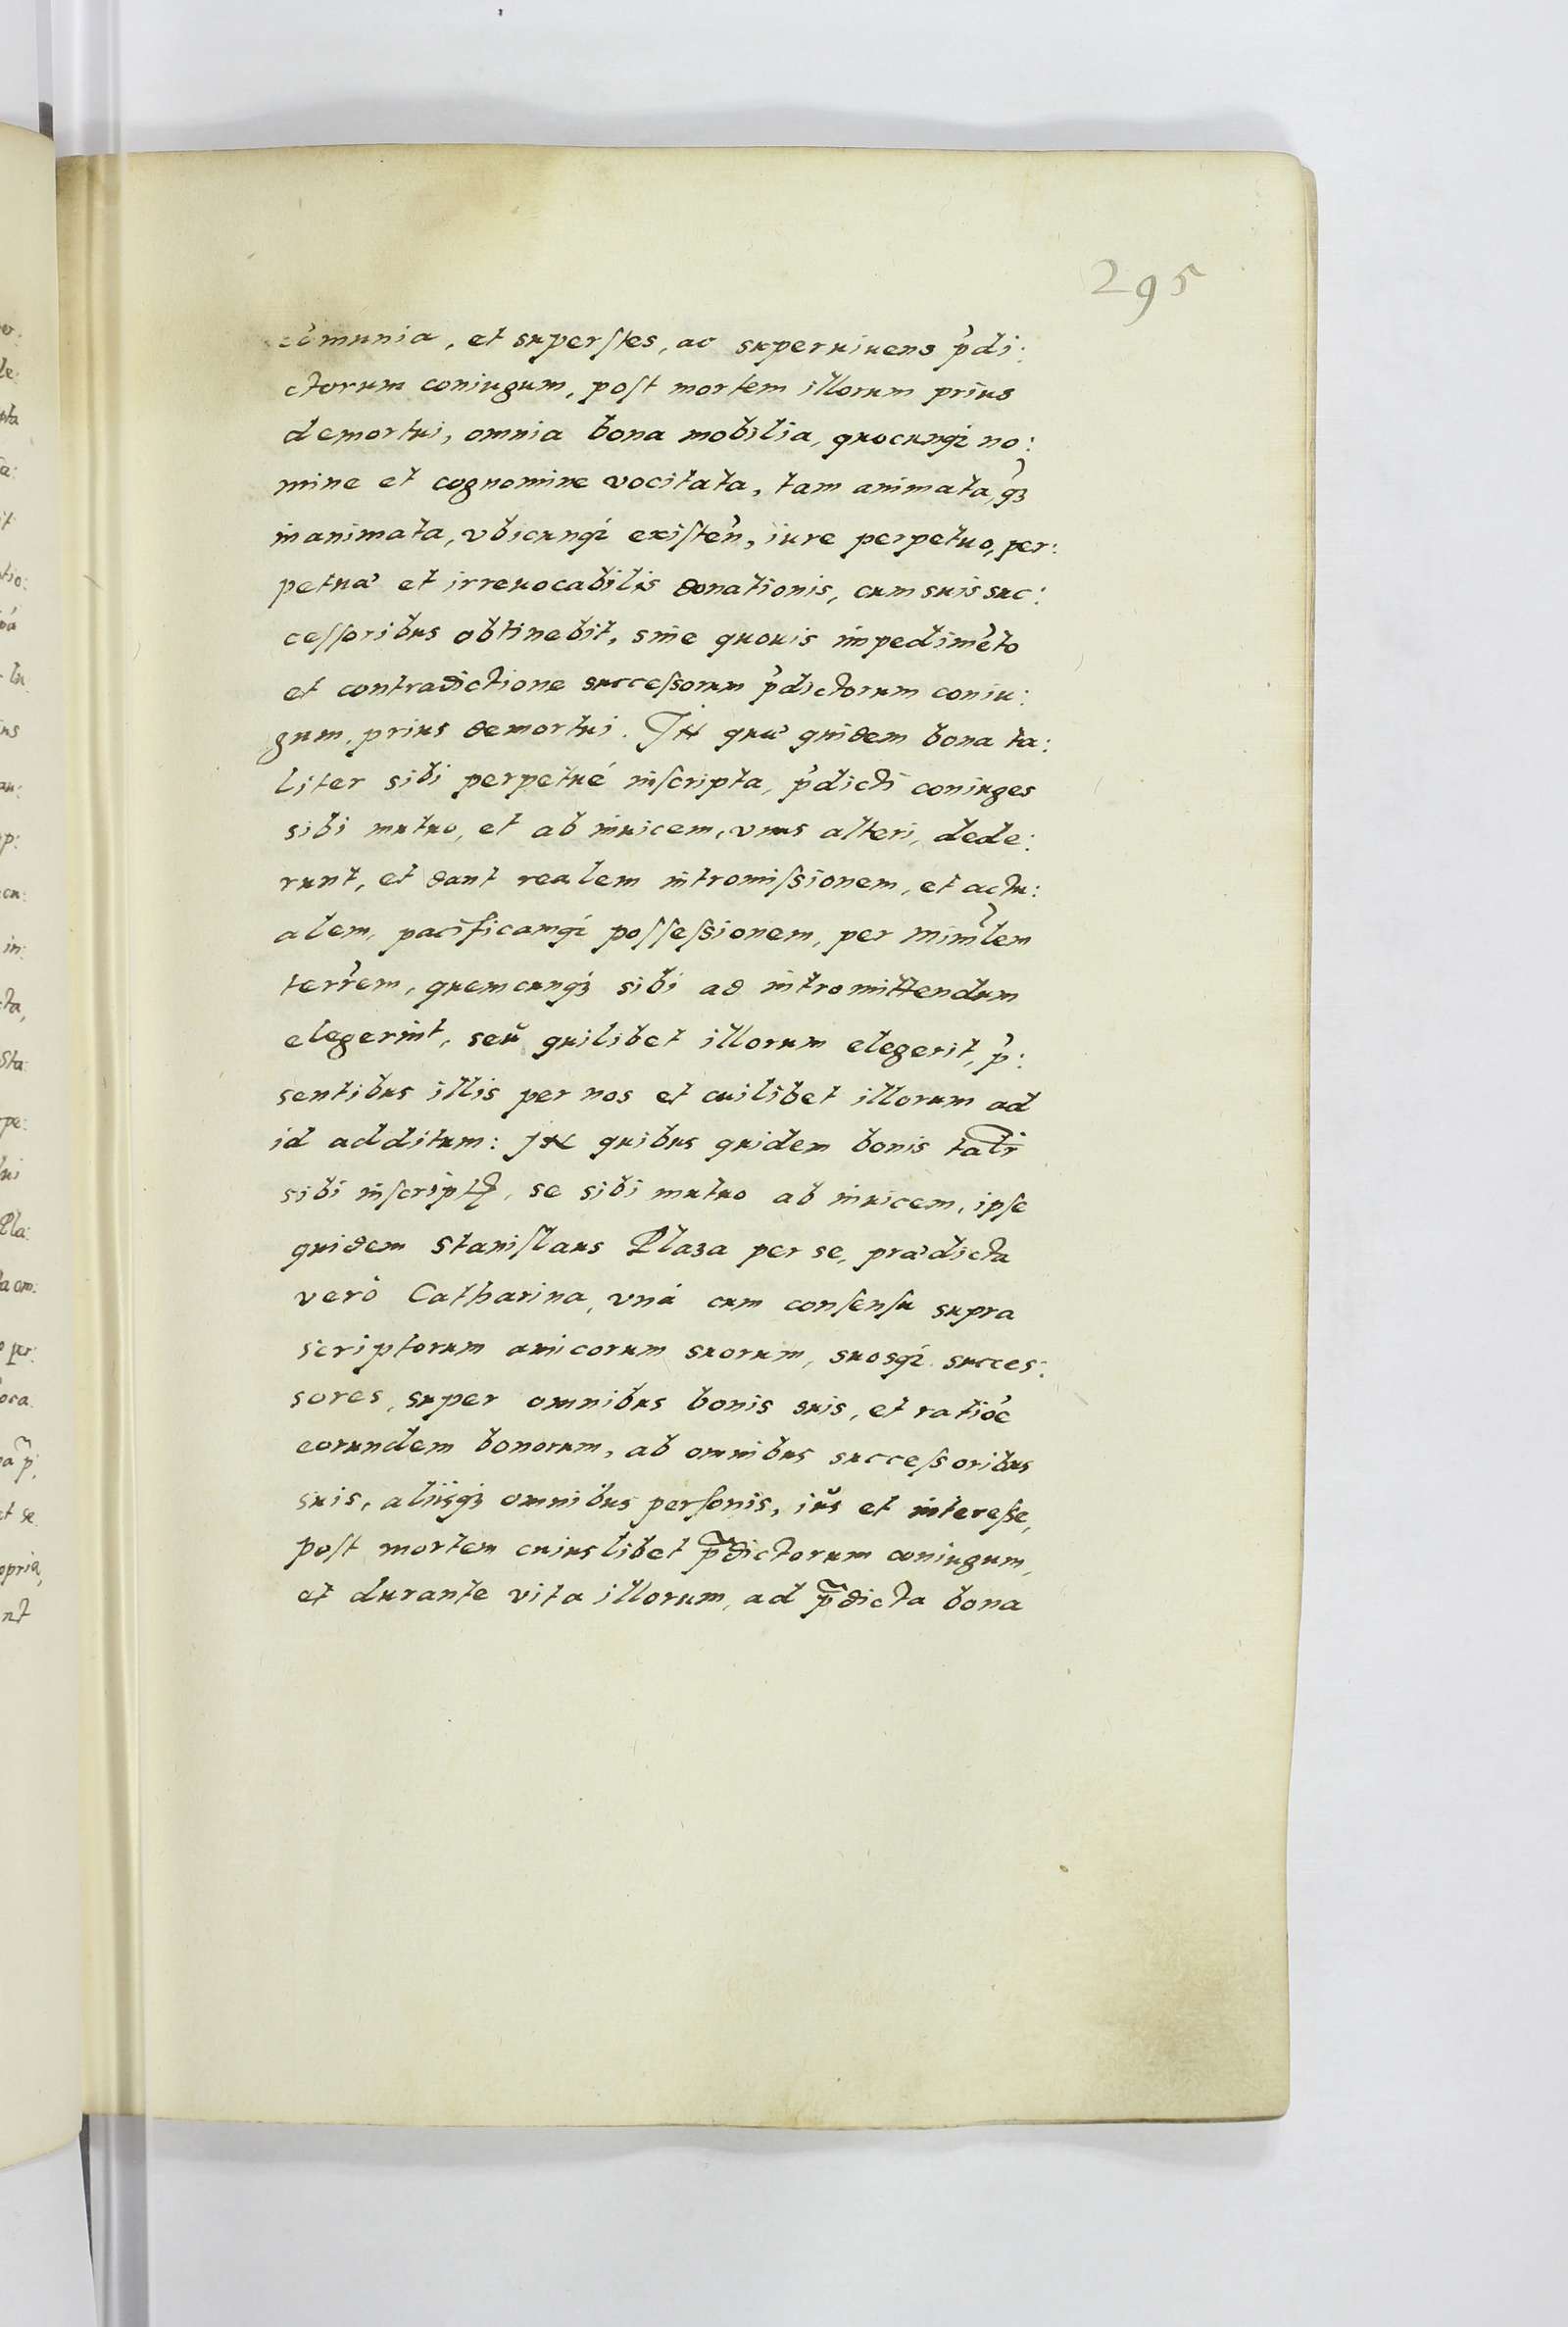 295
cõmunia, et superſtes, ac superuiuens p̃di:
ctorum coniugum, poſt mortem illorum prius
demortui, omnia bona mobilia, quocunqꝫ no:
mine et cognomine vocitata, tam animata, q̃ꝫ
inanimata, vbicunqꝫ exiſteñ, iure perpetuo, per:
petuæ et irreuocabilis donationis, cum suis suc:
ceſſoribus obtinebit, sine quouis impedimẽto
et contradictione succeſsorum p̃dictorum coniu:
gum, prius demortui. IN quæ quidem bona ta:
liter sibi perpetué inſcripta, p̃dicti coniuges
sibi mutuo, et ab inuicem, vnus alteri, dede:
runt, et dant realem intromiſsionem, et actu:
alem, pacificamqꝫ poſſeſsionem, per Minr̃lem
terr̃em, quemcunqꝫ sibi ad intromittendum
elegerint, seŭ quilibet illorum elegerit, p̃:
sentibus illis per nos et cuilibet illorum ad
id additum: IN quibus quidem bonis talr̃
sibi inſcriptꝭ, se sibi mutuo ab inuicem, ipſe
quidem Staniſlaus Plaza per se, prædicta
verò Catharina, vná cum conſenſu supra
scriptorum amicorum suorum, suosqꝫ succes:
sores, super omnibus bonis suis, et ratiõe
eorundem bonorum, ab omnibus succeſsoribus
suis, aliisqꝫ omnibus perſonis, iŭs et intereſse,
poſt mortem cuiuslibet p̃dictorum coniugum,
et durante vita illorum, ad p̃dicta bona